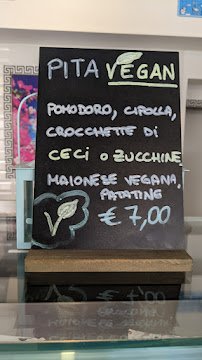 PITA VEGAN
POMODORO, CIPOLLA,
CROCCHETTE DI
CECI O ZUCCHINE
MAIONESE VEGANA,
PATATINE
€ 7,00